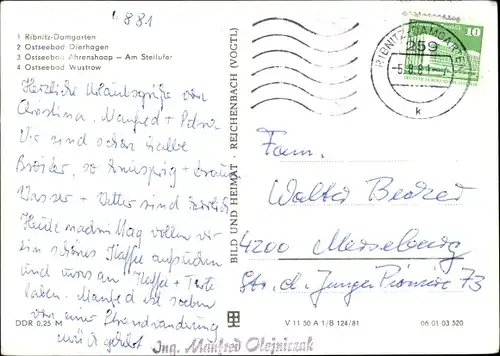 4881
1 Ribnitz-Damgarten
2 Ostseebad Dierhagen
3 Ostseebad Ahrenshoop - Am Steilufer
4 Ostseebad Wustrow
Herzliche Urlaubsgrüße von
Christina, Manfred + Petra
Wir sind schon halbe
Brötler, so knusprig + braun
Wasser + Wetter sind herrlich
Heute nachmittag wollen wir
ein schönes Kaffee aufsuchen
und uns an Kaffee + Torte
laben. Manfred ist soeben
von einer Strandwanderung
zurück gekehrt
DDR 0,25 M
BILD UND HEIMAT · REICHENBACH (VOGTL)
V 11 50 A 1/B 124/81
06 01 03 520
RIBNITZ-DAMGARTEN
259
-5.8.81-7
k
10
Fam.
Walter Becker
4200 Merseburg
Str. d. Jungen Pioniere 73
Ing. Manfred Olejniczak